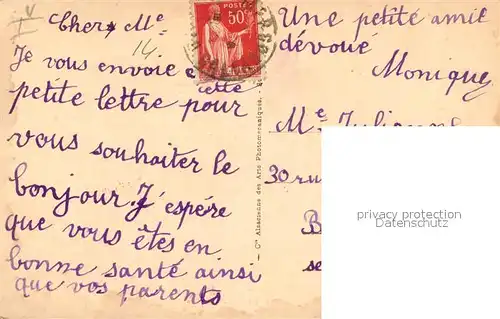 Cher Me
14
Je vous envoie cette
petite lettre pour
vous souhaiter le
bonjour. J'espére
que vous êtes en
bonne santé ainsi
que vos parents
POSTES
50c
Une petite amie
dévoué
Monique
Me
30 ru
B
se
Cie Alsacienne des Arts Photomécaniques.
privacy protection
Datenschutz